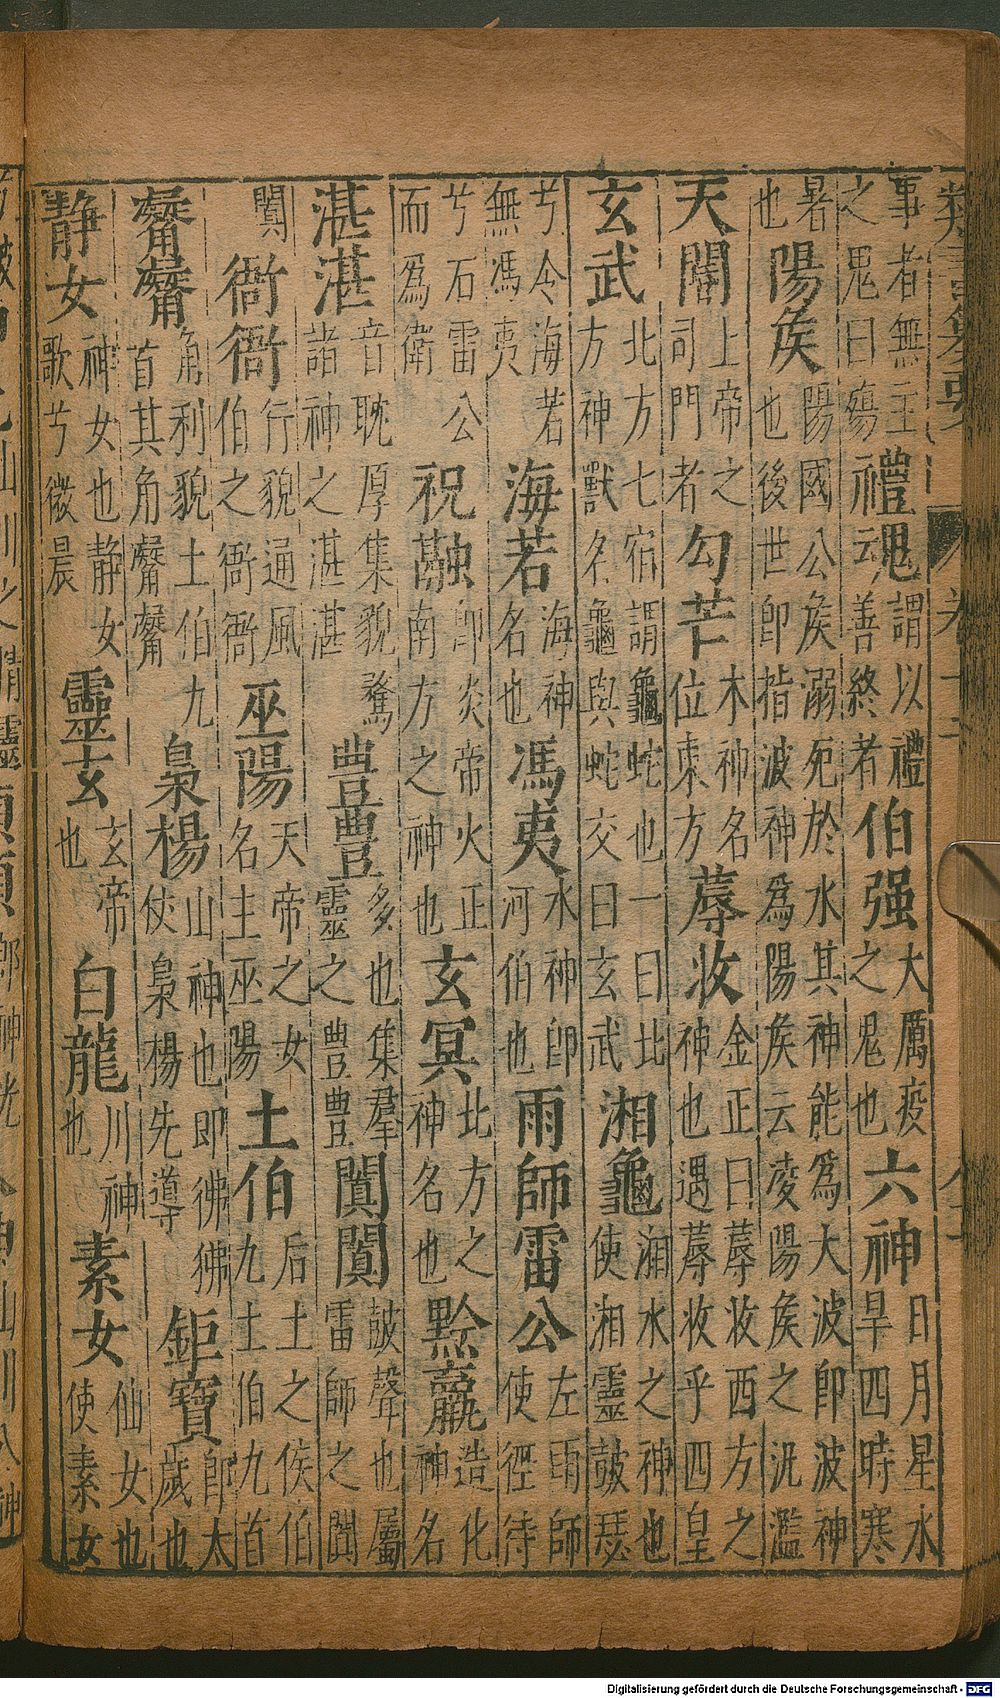 事者無主之鬼曰殤 禮䰟 謂以禮善終者 伯强 大厲疫之鬼也 六神 日月星水旱四時寒
暑也 陽矦 陽國公矦溺死於水其神能為大波即波神也後世即指波神為陽矦云凌陽矦之汎濫
天閽 上帝之司門者 勾芒 木神名位東方 蓐收 金正曰蓐收西方之神也遇蓐收乎四皇
玄武 北方七宿謂龜蛇也一曰北方神獸名龜與蛇交曰玄武 湘龜 湘水之神也使湘靈皷瑟
兮令海若無馮夷 海若 海神名也 馮夷 水神即河伯也 雨師雷公 左雨師使徑待
兮石雷公而為衛 祝融 即炎帝火正南方之神也 玄冥 北方之神名也 黔羸 造化神名
湛湛 音耽厚集貌騖諸神之湛湛 豊豊 多也集群靈之豊豊 闐闐 皷聲也屬雷師之闐
闐 衙衙 行貌通風伯之衙衙 巫陽 天帝之女名主巫陽 土伯 后土之侯伯九土伯九首
觺觺 角利貌土伯九首其角觺觺 梟楊 山神也即彿彿使梟楊先導 鉅寳 即太歲也
靜女 神女也靜女歌兮微晨 靈玄 玄帝也 白龍 川神也 素女 仙女也使素女
Digitalisierung gefördert durch die Deutsche Forschungsgemeinschaft - DFG